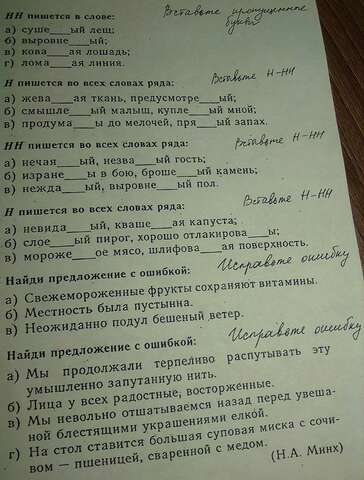 НН пишется в слове: Вставьте пропущенные буквы
а) суше___ый лещ;
б) выровне___ый;
в) кова___ая лошадь;
г) лома___ая линия.
Н пишется во всех словах ряда: Вставьте Н-НН
а) жева___ая ткань, предусмотре___ый;
б) смышле___ый малыш, купле___ый мной;
в) продума___ы до мелочей, пря___ый запах.
НН пишется во всех словах ряда: Вставьте Н-НН
а) нечая___ый, незва___ый гость;
б) изране___ы в бою, броше___ый камень;
в) нежда___ый, выровне___ый пол.
Н пишется во всех словах ряда: Вставьте Н-НН
а) невида___ый, кваше___ая капуста;
б) слое___ый пирог, хорошо отлакирова___ы;
в) мороже___ое мясо, шлифова___ая поверхность.
Найди предложение с ошибкой: Исправьте ошибку
а) Свежемороженные фрукты сохраняют витамины.
б) Местность была пустынна.
в) Неожиданно подул бешеный ветер.
Найди предложение с ошибкой: Исправьте ошибку
а) Мы продолжали терпеливо распутывать эту
умышленно запутанную нить.
б) Лица у всех радостные, восторженные.
в) Мы невольно отшатываемся назад перед увеша-
ной блестящими украшениями елкой.
г) На стол ставится большая суповая миска с сочи-
вом — пшеницей, сваренной с медом.
(Н.А. Минх)